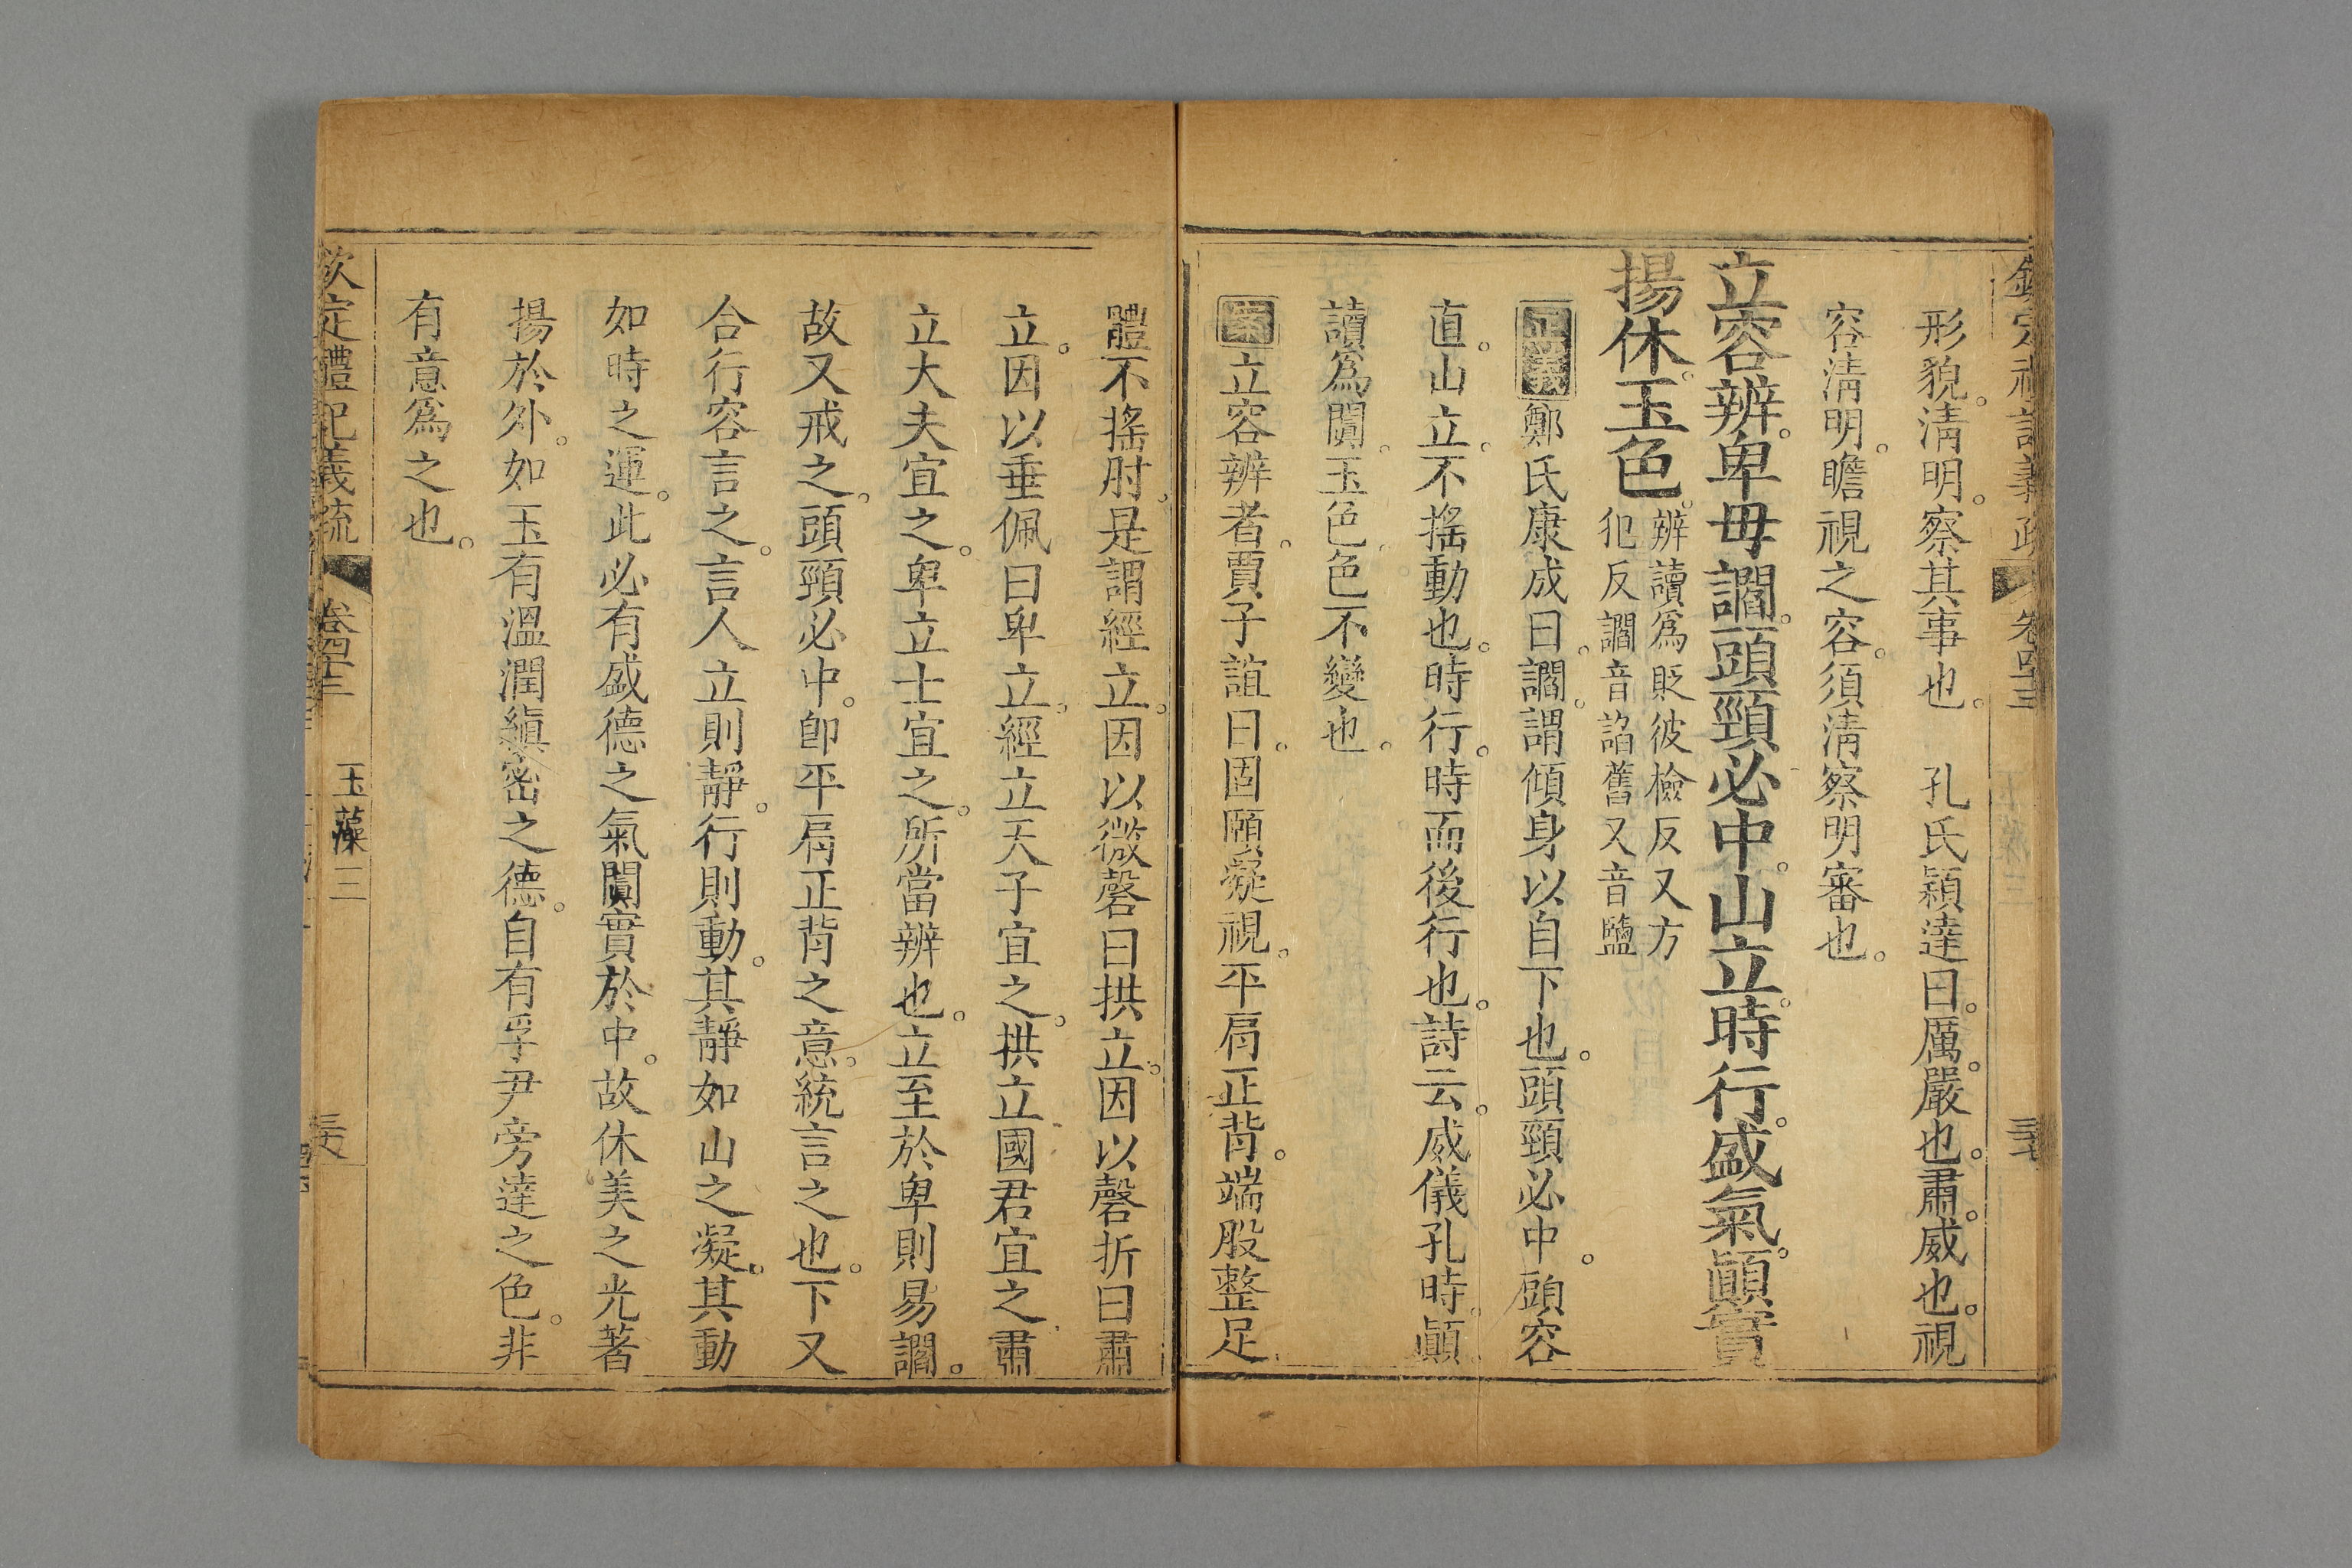 欽定禮記義疏 卷四十三 三七
形貌。清明。察其事也。 孔氏穎達曰。厲。嚴也。肅。威也。視
容清明。瞻視之容。須清察明審也。
立容辨。卑毋讇。頭頸必中。山立。時行。盛氣。顚實
揚休。玉色。
辨讀爲貶彼檢反又方
犯反讇音諂舊又音鹽
正義鄭氏康成曰。讇。謂傾身以自下也。頭頸必中。頭容
直。山立。不搖動也。時行。時而後行也。詩云。威儀孔時。顚。
讀爲闐。玉色。色不變也。
案立容辨者。賈子誼曰。固頤凝視。平肩正背。端股整足。
體不搖肘。是謂經立。因以微磬曰拱立。因以磬折曰肅
立。因以垂佩曰卑立。經立天子宜之。拱立國君宜之。肅
立大夫宜之。卑立士宜之。所當辨也。立至於卑則易讇。
故又戒之。頭頸必中。卽平肩正背之意。統言之也。下又
合行容言之。言人立則靜。行則動。其靜如山之凝。其動
如時之運。此必有盛德之氣闐實於中。故休美之光著
揚於外。如玉有溫潤縝密之德。自有孚尹旁達之色。非
有意爲之也。
欽定禮記義疏 卷四十三 玉藻三 三天